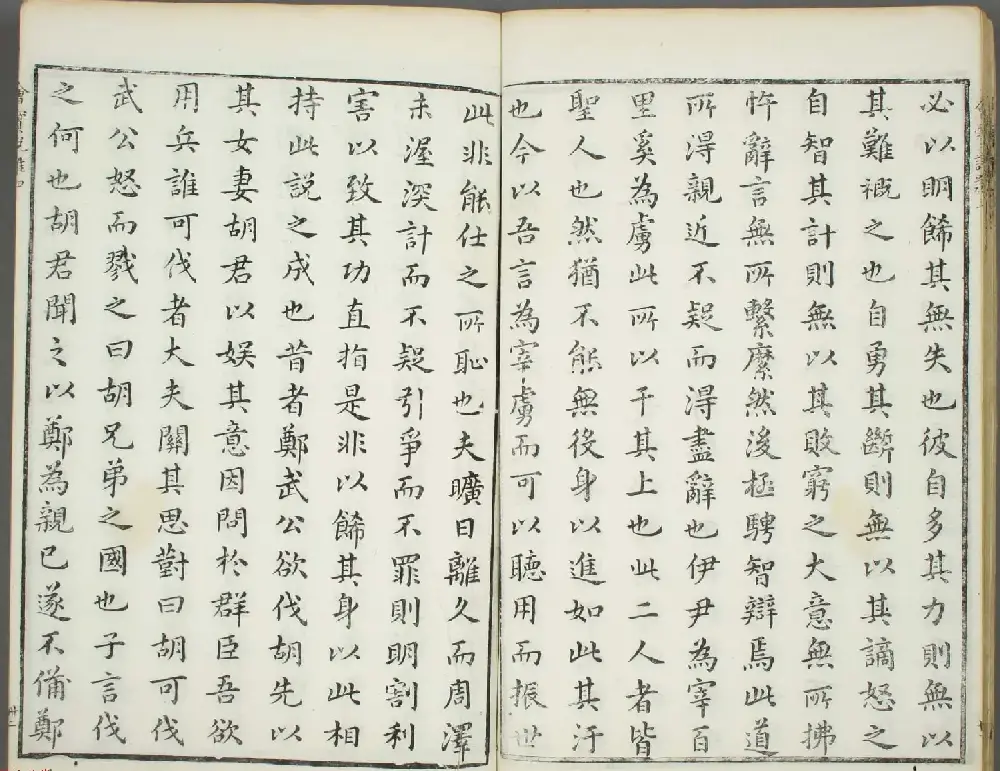 必以明飾其無失也彼自多其力則無以
其難概之也自勇其斷則無以其謫怒之
自智其計則無以其敗窮之大意無所拂
忤辭言無所繫縻然後極騁智辯焉此道
所得親近不疑而得盡辭也伊尹為宰百
里奚為虜此所以干其上也此二人者皆
聖人也然猶不能無役身以進如此其汙
也今以吾言為宰虜而可以聽用而振世
此非能仕之所恥也夫曠日離久而周澤
未渥深計而不疑引爭而不罪則明割利
害以致其功直指是非以飾其身以此相
持此說之成也昔者鄭武公欲伐胡先以
其女妻胡君以娛其意因問於群臣吾欲
用兵誰可伐者大夫關其思對曰胡可伐
武公怒而戮之曰胡兄弟之國也子言伐
之何也胡君聞之以鄭為親己遂不備鄭